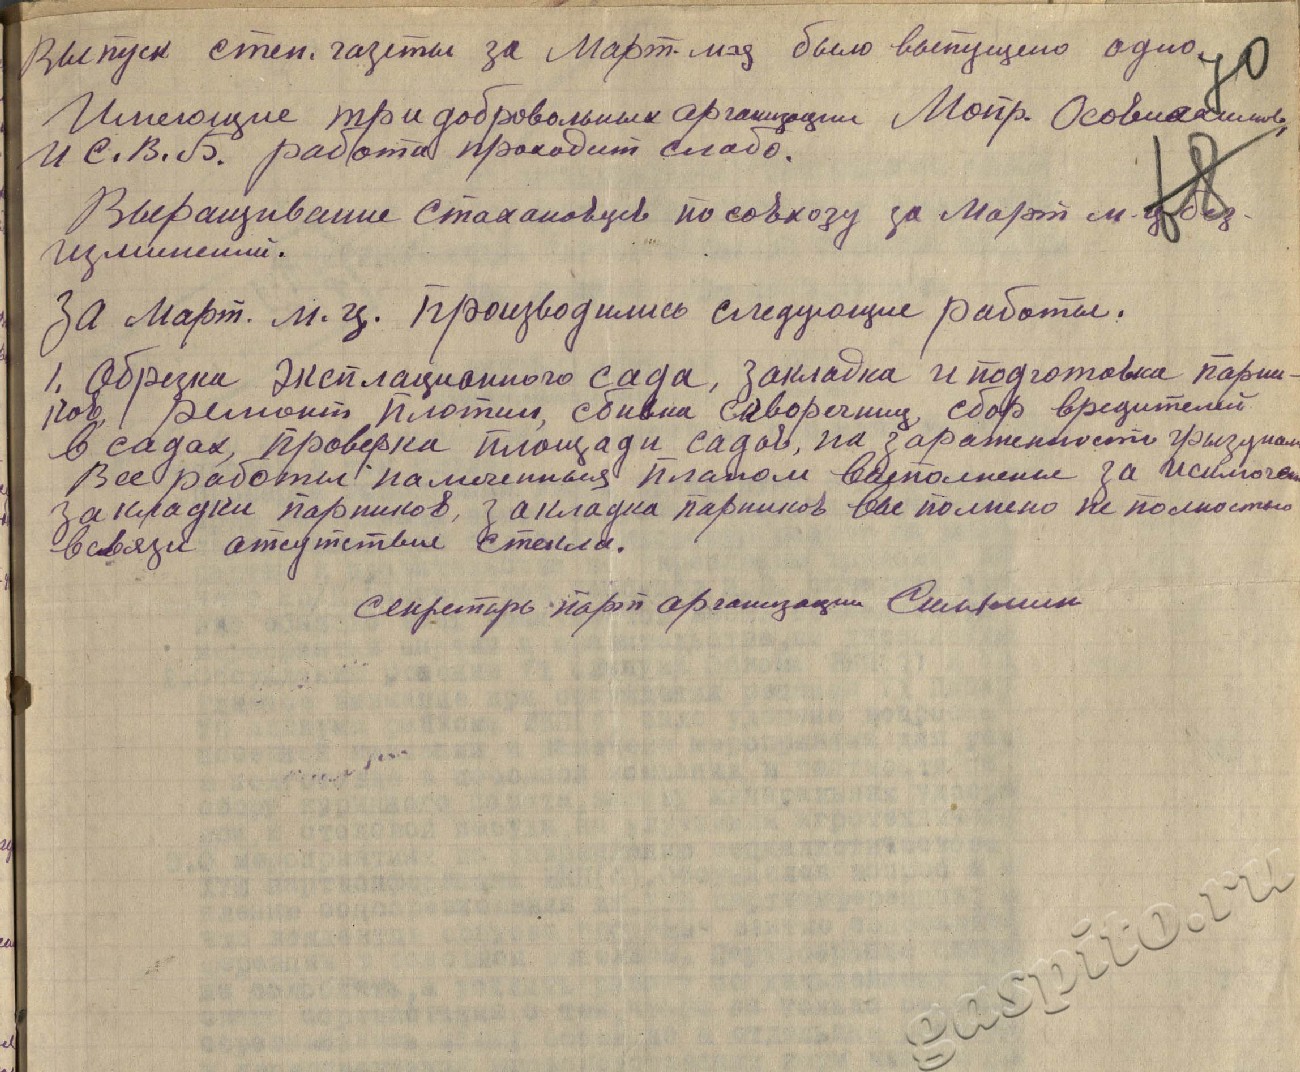 Выпуск стен. газеты за Март м-ц было выпущено одно.
70
Имеющие три добровольных организации Мопр. Осовиахимов,
и С.В.Б. работа проходит слабо.
68
Выращивание стахановцев по совхозу за Март м-ц без-
изминений.
За Март. м.ц. производились следующие работы.
1. Обрезка эксплационного сада, закладка и подготовка парни-
ков, ремонт плотин, сбивка скворечниц, сбор вредителей
в садах, проверка площади садов, на зараженность грызунам
Все работы намеченные планом выполнены за исключен
закладки парников, закладка парников выполнено не полностью
всвязи отсутствие стекла.
Секретарь парт организации
gaspito.ru